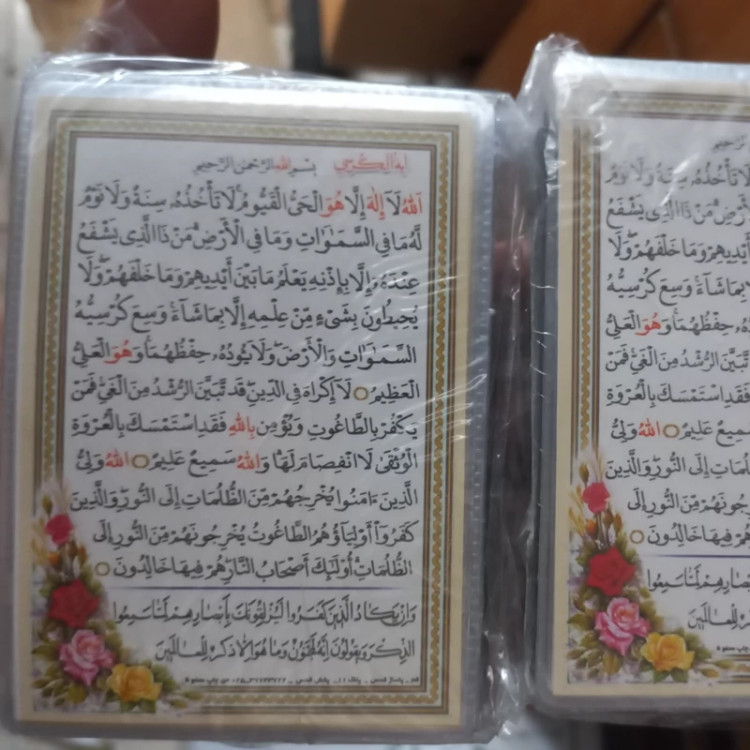 آیة الکرسي بسم الله الرحمن الرحیم
اَللّٰهُ لَآ اِلٰهَ اِلَّا هُوَ الْحَیُّ الْقَیُّومُ لَا تَأْخُذُهُ سِنَةٌ وَلَا نَوْمٌ
لَهُ مَا فِی السَّمٰوَاتِ وَمَا فِی الْأَرْضِ مَنْ ذَا الَّذِی یَشْفَعُ
عِنْدَهُ اِلَّا بِاِذْنِهِ یَعْلَمُ مَا بَیْنَ أَیْدِیهِمْ وَمَا خَلْفَهُمْ وَلَا
یُحِیطُونَ بِشَیْءٍ مِّنْ عِلْمِهِ اِلَّا بِمَا شَآءَ وَسِعَ کُرْسِیُّهُ
السَّمٰوَاتِ وَالْأَرْضَ وَلَا یَؤُدُهُ حِفْظُهُمَا وَهُوَ الْعَلِیُّ
الْعَظِیمُ ○ لَآ اِکْرَاهَ فِی الدِّینِ قَد تَّبَیَّنَ الرُّشْدُ مِنَ الْغَیِّ فَمَنْ
یَکْفُرْ بِالطَّاغُوتِ وَیُؤْمِن بِاللّٰهِ فَقَدِ اسْتَمْسَكَ بِالْعُرْوَةِ
الْوُثْقَی لَا انْفِصَامَ لَهَا وَاللّٰهُ سَمِیعٌ عَلِیمٌ ○ اَللّٰهُ وَلِیُّ
الَّذِینَ ءَامَنُوا یُخْرِجُهُمْ مِنَ الظُّلُمَاتِ اِلَی النُّورِ وَالَّذِینَ
کَفَرُوآ أَوْلِیَآؤُهُمُ الطَّاغُوتُ یُخْرِجُونَهُمْ مِنَ النُّورِ اِلَی
الظُّلُمَاتِ أُولٰئِكَ أَصْحَابُ النَّارِ هُمْ فِیهَا خَالِدُونَ ○
وَاِنْ یَکَادُ الَّذِینَ کَفَرُوا لَیُزْلِقُونَكَ بِأَبْصَارِهِمْ لَمَّا سَمِعُوا
الذِّکْرَ وَیَقُولُونَ اِنَّهُ لَمَجْنُونٌ وَمَا هُوَ اِلَّا ذِکْرٌ لِلْعَالَمِینَ
لَا تَأْخُذُهُ سِنَةٌ وَلَا نَوْمٌ
مَنْ ذَا الَّذِی یَشْفَعُ
أَیْدِیهِمْ وَمَا خَلْفَهُمْ وَلَا
بِمَا شَآءَ وَسِعَ کُرْسِیُّهُ
حِفْظُهُمَا وَهُوَ الْعَلِیُّ
تَّبَیَّنَ الرُّشْدُ مِنَ الْغَیِّ فَمَنْ
فَقَدِ اسْتَمْسَكَ بِالْعُرْوَةِ
سَمِیعٌ عَلِیمٌ ○ اَللّٰهُ وَلِیُّ
اِلَی النُّورِ وَالَّذِینَ
مِنَ النُّورِ اِلَی
هُمْ فِیهَا خَالِدُونَ ○
لَمَّا سَمِعُوا
لِلْعَالَمِینَ